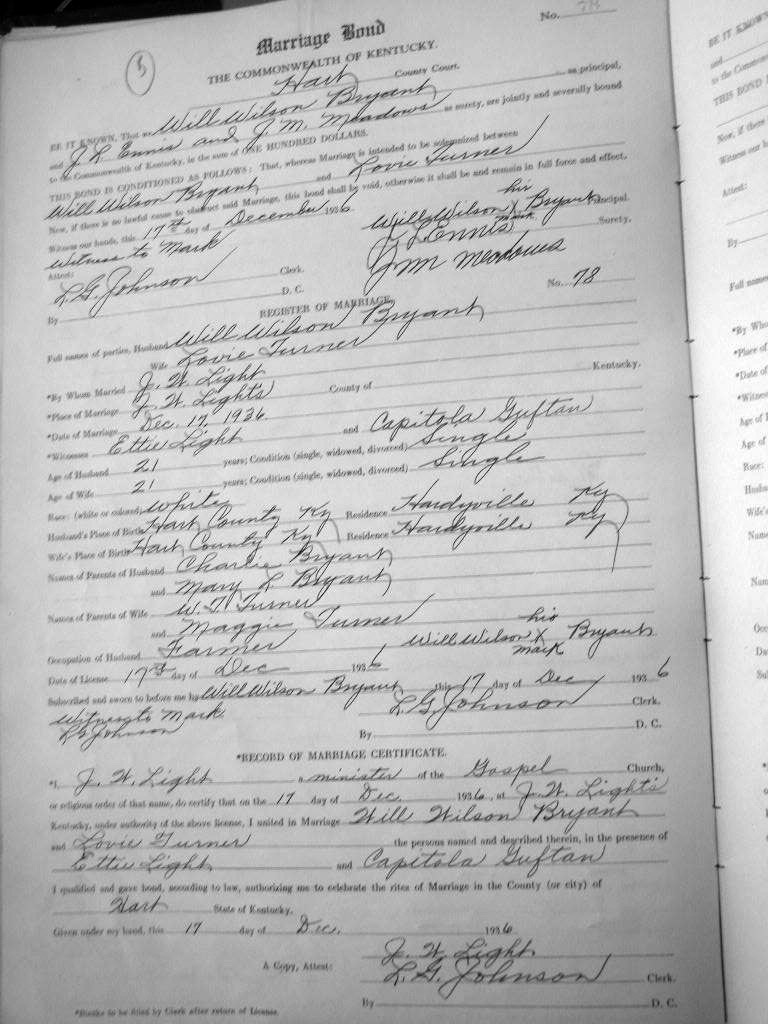 No. 78
5
Marriage Bond
THE COMMONWEALTH OF KENTUCKY.
Hart County Court.
BE IT KNOWN, That we Will Wilson Bryant as principal,
and J. L. Ennis and J. M. Meadows as surety, are jointly and severally bound
to the Commonwealth of Kentucky, in the sum of ONE HUNDRED DOLLARS.
THIS BOND IS CONDITIONED AS FOLLOWS: That, whereas Marriage is intended to be solemnized between
Will Wilson Bryant and Lovie Turner
Now, if there is no lawful cause to obstruct said Marriage, this bond shall be void, otherwise it shall be and remain in full force and effect.
Witness our hands, this 17th day of December 1936
his
Will Wilson X Bryant Principal.
mark
Witness to Mark
J L Ennis Surety.
Attest:
J M Meadows
L. G. Johnson Clerk.
By D. C.
No. 78
REGISTER OF MARRIAGE
Full names of parties, Husband Will Wilson Bryant
Wife Lovie Turner
*By Whom Married J. W. Light
*Place of Marriage J. W. Light's County of Kentucky.
*Date of Marriage Dec. 17, 1936
*Witnesses Ettie Light and Capitola Guftan
Age of Husband 21 years; Condition (single, widowed, divorced) Single
Age of Wife 21 years; Condition (single, widowed, divorced) Single
Race: (white or colored) White
Husband's Place of Birth Hart County Ky Residence Hardyville Ky
Wife's Place of Birth Hart County Ky Residence Hardyville Ky
Names of Parents of Husband Charlie Bryant
and Mary L Bryant
Names of Parents of Wife W. T. Turner
and Maggie Turner
Occupation of Husband Farmer
his
Will Wilson X Bryant
mark
Date of License 17th day of Dec 1936
Subscribed and sworn to before me by Will Wilson Bryant this 17 day of Dec 1936
Witness to Mark
L. G. Johnson Clerk.
L G Johnson
By D. C.
*RECORD OF MARRIAGE CERTIFICATE.
*I, J. W. Light a minister of the Gospel Church,
or religious order of that name, do certify that on the 17 day of Dec. 1936, at J. W. Light's
Kentucky, under authority of the above license, I united in Marriage Will Wilson Bryant
and Lovie Turner the persons named and described therein, in the presence of
Ettie Light and Capitola Guftan
I qualified and gave bond, according to law, authorizing me to celebrate the rites of Marriage in the County (or city) of
Hart State of Kentucky.
Given under my hand, this 17 day of Dec. 1936
J. W. Light
A Copy, Attest: L. G. Johnson Clerk.
By D. C.
*Blanks to be filled by Clerk after return of License.
BE IT KNOWN
and
to the Common
THIS BOND I
Now, if there
Witness our h
Attest:
By
Full names
*By Who
*Place of
*Date of
*Witness
Age of
Age of
Race:
Husba
Wife's
Name
Nam
Occ
Da
Sub